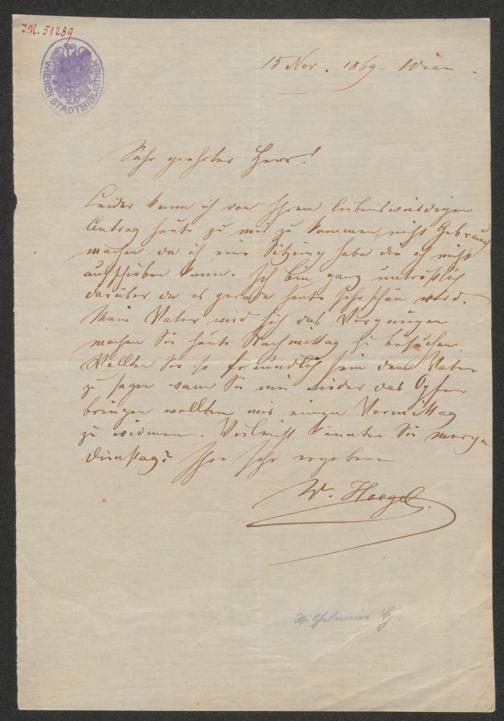 J.N. 51289
WIENER STADTBIBLIOTHEK
15 Nov. 1869 Wien
Sehr geehrter Herr!
Leider kann ich von Ihrem liebenswürdigen
Antrag heute zu mir zu kommen, nicht Gebrauch
machen da ich eine Sitzung habe die ich nicht
aufschieben kann. Ich bin ganz untröstlich
darüber da es gerade heute sehr schön wird.
Mein Vater wird sich das Vergnügen
machen Sie heute Nachmittag zu besuchen
Wollten Sie so freundlich sein dem Vater
zu sagen wann Sie mir wieder das Opfer
bringen wollten mir einen Vormittag
zu widmen. Vielleicht könnten Sie morgen
Dienstag? Ihre sehr ergebene
W. Haegel
Wilhelmine H.